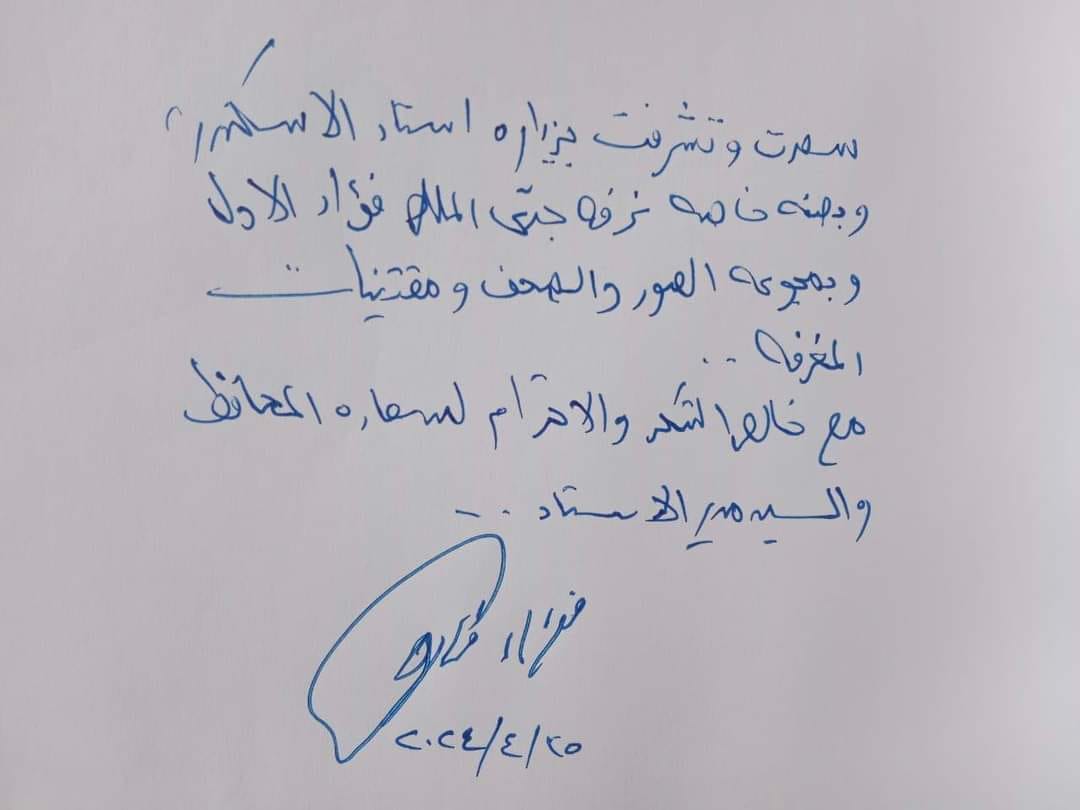 سعدت وتشرفت بزياره استاد الاسكندريه
وبصفه خاصه غرفه جدى الملك فؤاد الاول
وبمجموعه الصور والصحف ومقتنيات
الغرفه ..
مع خالص الشكر والاحترام لسعاده المحافظ
والسيد مدير الاستاد ..
فؤاد فاروق
٢٠٢٤/٤/٢٥